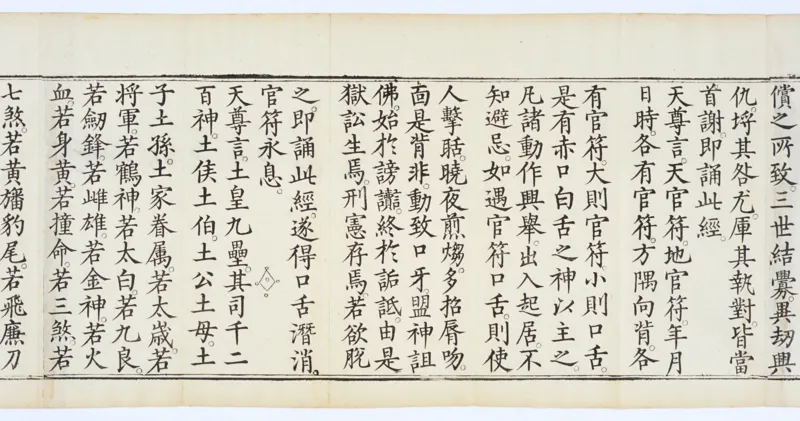 償之所致。三世結釁。異劫興
仇。埒其咎尤。庫其執對。皆當
首謝。即誦此經。
天尊言。天官符。地官符。年月
日時。各有官符。方隅向背。各
有官符。大則官符。小則口舌。
是有赤口白舌之神以主之。
凡諸動作興舉。出入起居。不
知避忌。如遇官符口舌。則使
人擊聒。曉夜煎煼。多招脣吻。
面是背非。動致口牙。盟神詛
佛。始於謗讟。終於詬詆。由是
獄訟生焉。刑憲存焉。若欲脫
之。即誦此經。遂得口舌潛消。
官符永息。
天尊言。土皇九壘。其司千二
百神。土侯土伯。土公土母。土
子土孫。土家眷属。若太歲。若
將軍。若鶴神。若太白。若九良。
若劒鋒。若雌雄。若金神。若火
血。若身黃。若撞命。若三煞。若
七煞。若黃旛豹尾。若飛廉刀